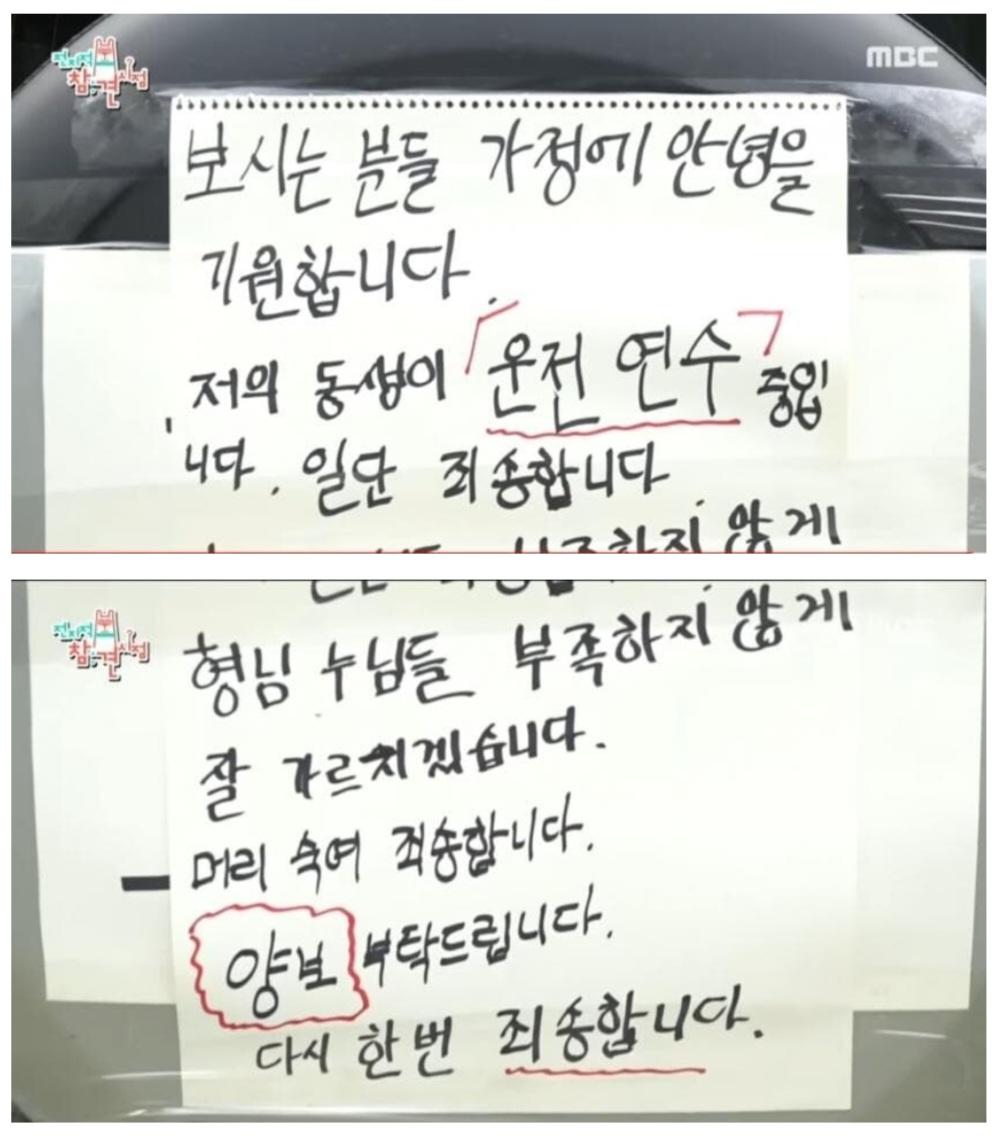 전지적
참견시점
MBC
보시는 분들 가정에 안녕을
기원합니다.
저의 동생이 「운전 연수」 중입
니다. 일단 죄송합니다
형님 누님들 부족하지 않게
전지적
참견시점
형님 누님들 부족하지 않게
잘 가르치겠습니다.
머리 숙여 죄송합니다.
양보 부탁드립니다.
다시 한번 죄송합니다.